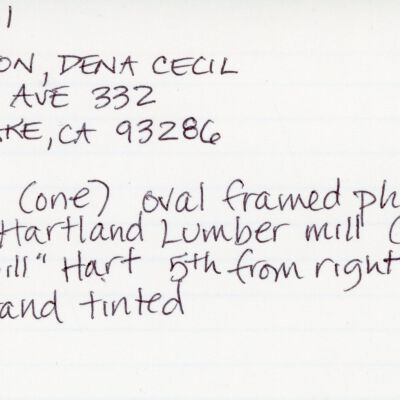 1
ON, DENA CECIL
AVE 332
KE, CA 93286
(one) oval framed ph
Hartland Lumber mill (
ill" Hart 5th from right
and tinted